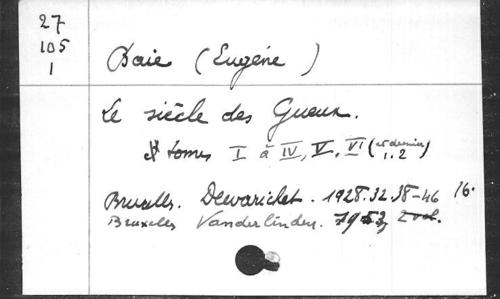 27
105
1
Baie (Eugène)
Le siècle des Gueux.
tomes I à IV, V, VI (et dernier)
1.2
Bruxelles. Dewarichet. 1928.32.38-46 16.
Bruxelles Vanderlinden. 1953, 2 vol.